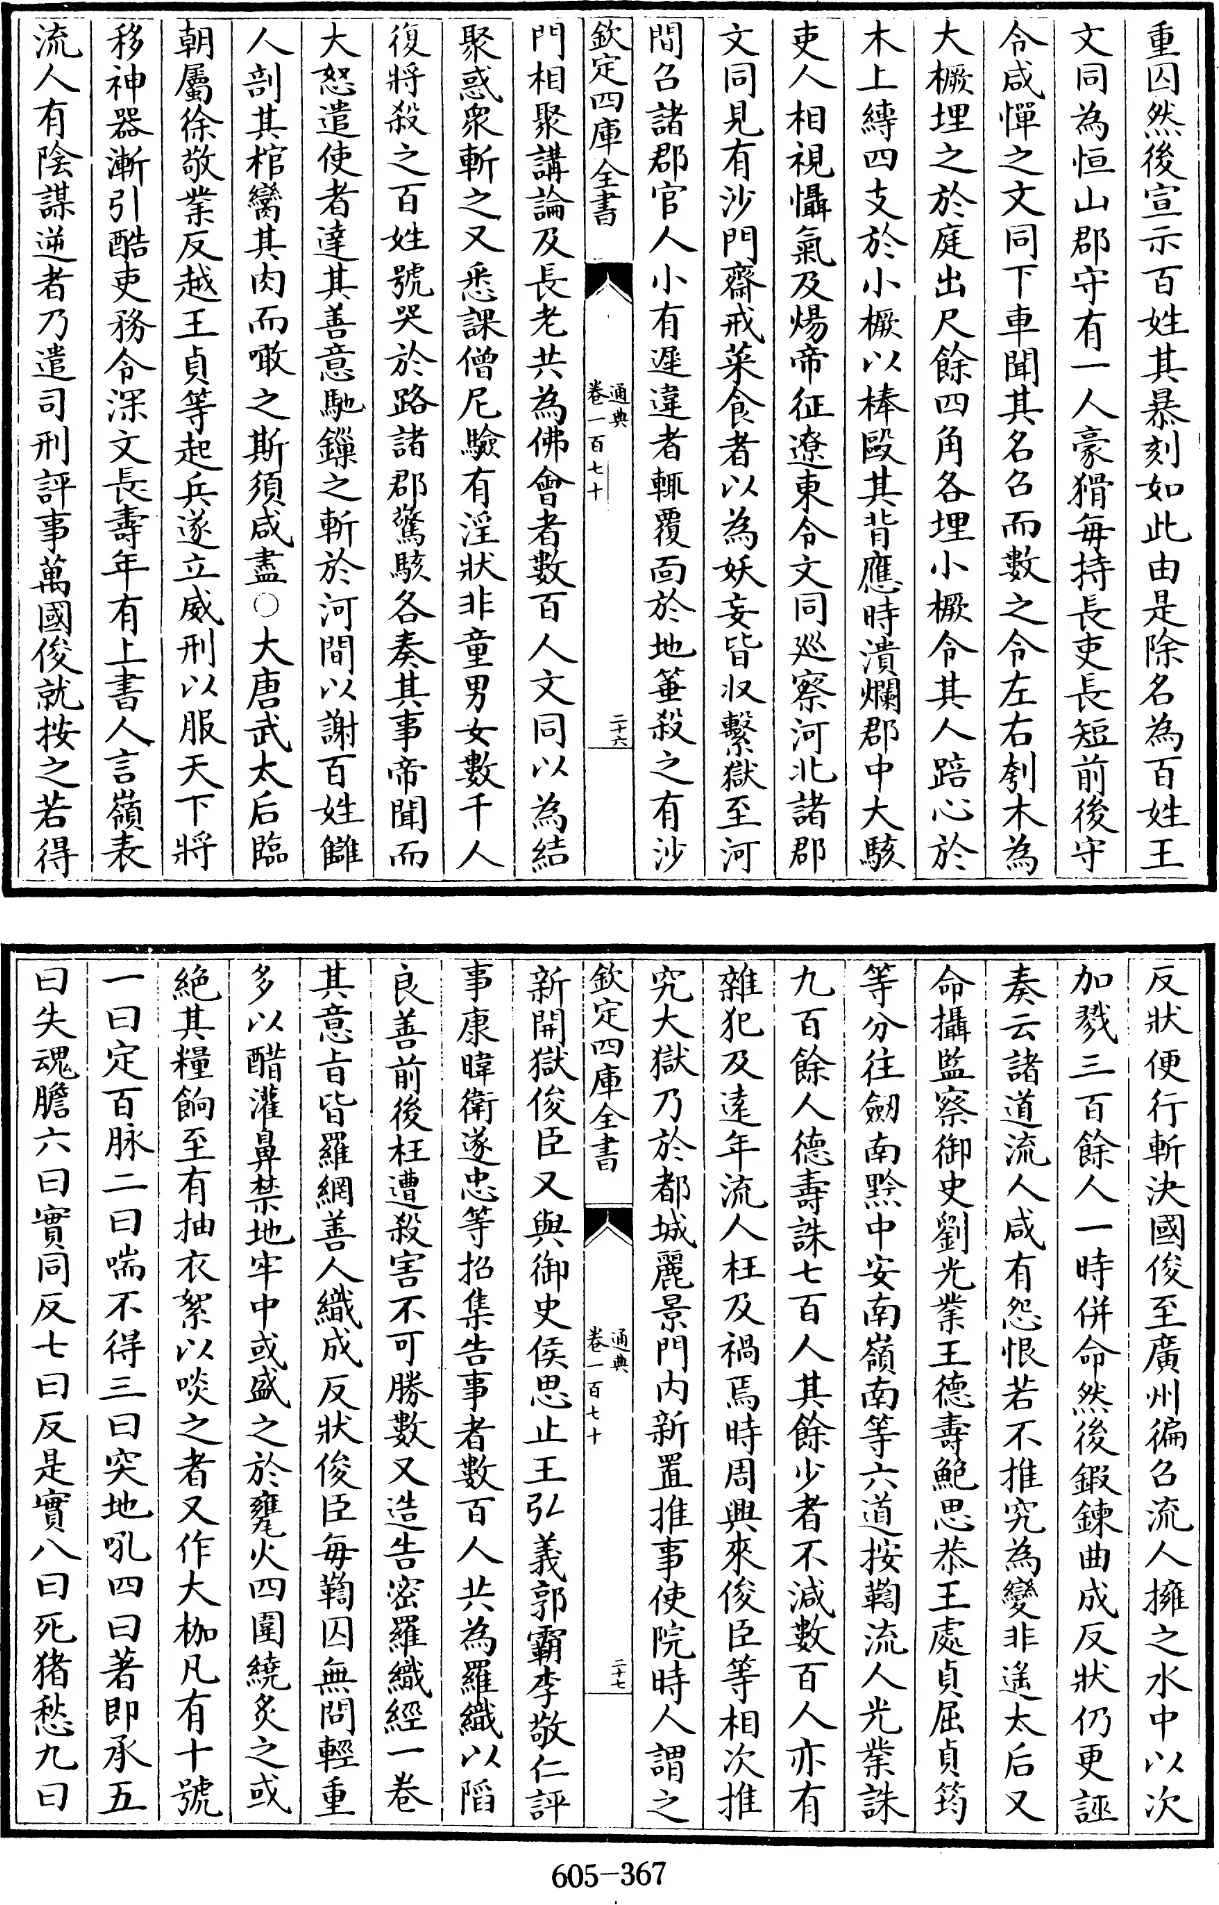 重囚然後宣示百姓其暴刻如此由是除名為百姓王
文同為恒山郡守有一人豪猾每持長吏長短前後守
令咸憚之文同下車聞其名召而數之令左右刳木為
大橛埋之於庭出尺餘四角各埋小橛令其人踣心於
木上縛四支於小橛以棒毆其背應時潰爛郡中大駭
吏人相視懾氣及煬帝征遼東令文同廵察河北諸郡
文同見有沙門齋戒菜食者以為妖妄皆収繫獄至河
間召諸郡官人小有遲違者輒覆面於地箠殺之有沙
欽定四庫全書
通典
卷一百七十
二十六
門相聚講論及長老共為佛會者數百人文同以為結
聚惑衆斬之又悉課僧尼驗有淫狀非童男女數千人
復將殺之百姓號哭於路諸郡驚駭各奏其事帝聞而
大怒遣使者達其善意馳鏁之斬於河間以謝百姓讎
人剖其棺臠其肉而噉之斯須咸盡○大唐武太后臨
朝屬徐敬業反越王貞等起兵遂立威刑以服天下將
移神器漸引酷吏務令深文長壽年有上書人言嶺表
流人有陰謀逆者乃遣司刑評事萬國俊就按之若得
反狀便行斬決國俊至廣州徧召流人擁之水中以次
加戮三百餘人一時併命然後鍛鍊曲成反狀仍更誣
奏云諸道流人咸有怨恨若不推究為變非遥太后又
命攝監察御史劉光業王德壽鮑思恭王處貞屈貞筠
等分往劒南黔中安南嶺南等六道按鞫流人光業誅
九百餘人德壽誅七百人其餘少者不減數百人亦有
雜犯及逺年流人枉及禍焉時周興來俊臣等相次推
究大獄乃於都城麗景門内新置推事使院時人謂之
欽定四庫全書
通典
卷一百七十
二十七
新開獄俊臣又與御史侯思止王弘義郭霸李敬仁評
事康暐衛遂忠等招集告事者數百人共為羅織以陷
良善前後枉遭殺害不可勝數又造告密羅織經一卷
其意旨皆羅網善人織成反狀俊臣每鞫囚無問輕重
多以醋灌鼻禁地牢中或盛之於甕火四圍繞炙之或
絶其糧餉至有抽衣絮以啖之者又作大枷凡有十號
一曰定百脉二曰喘不得三曰突地吼四曰著即承五
曰失魂膽六曰實同反七曰反是實八曰死猪愁九曰
605-367